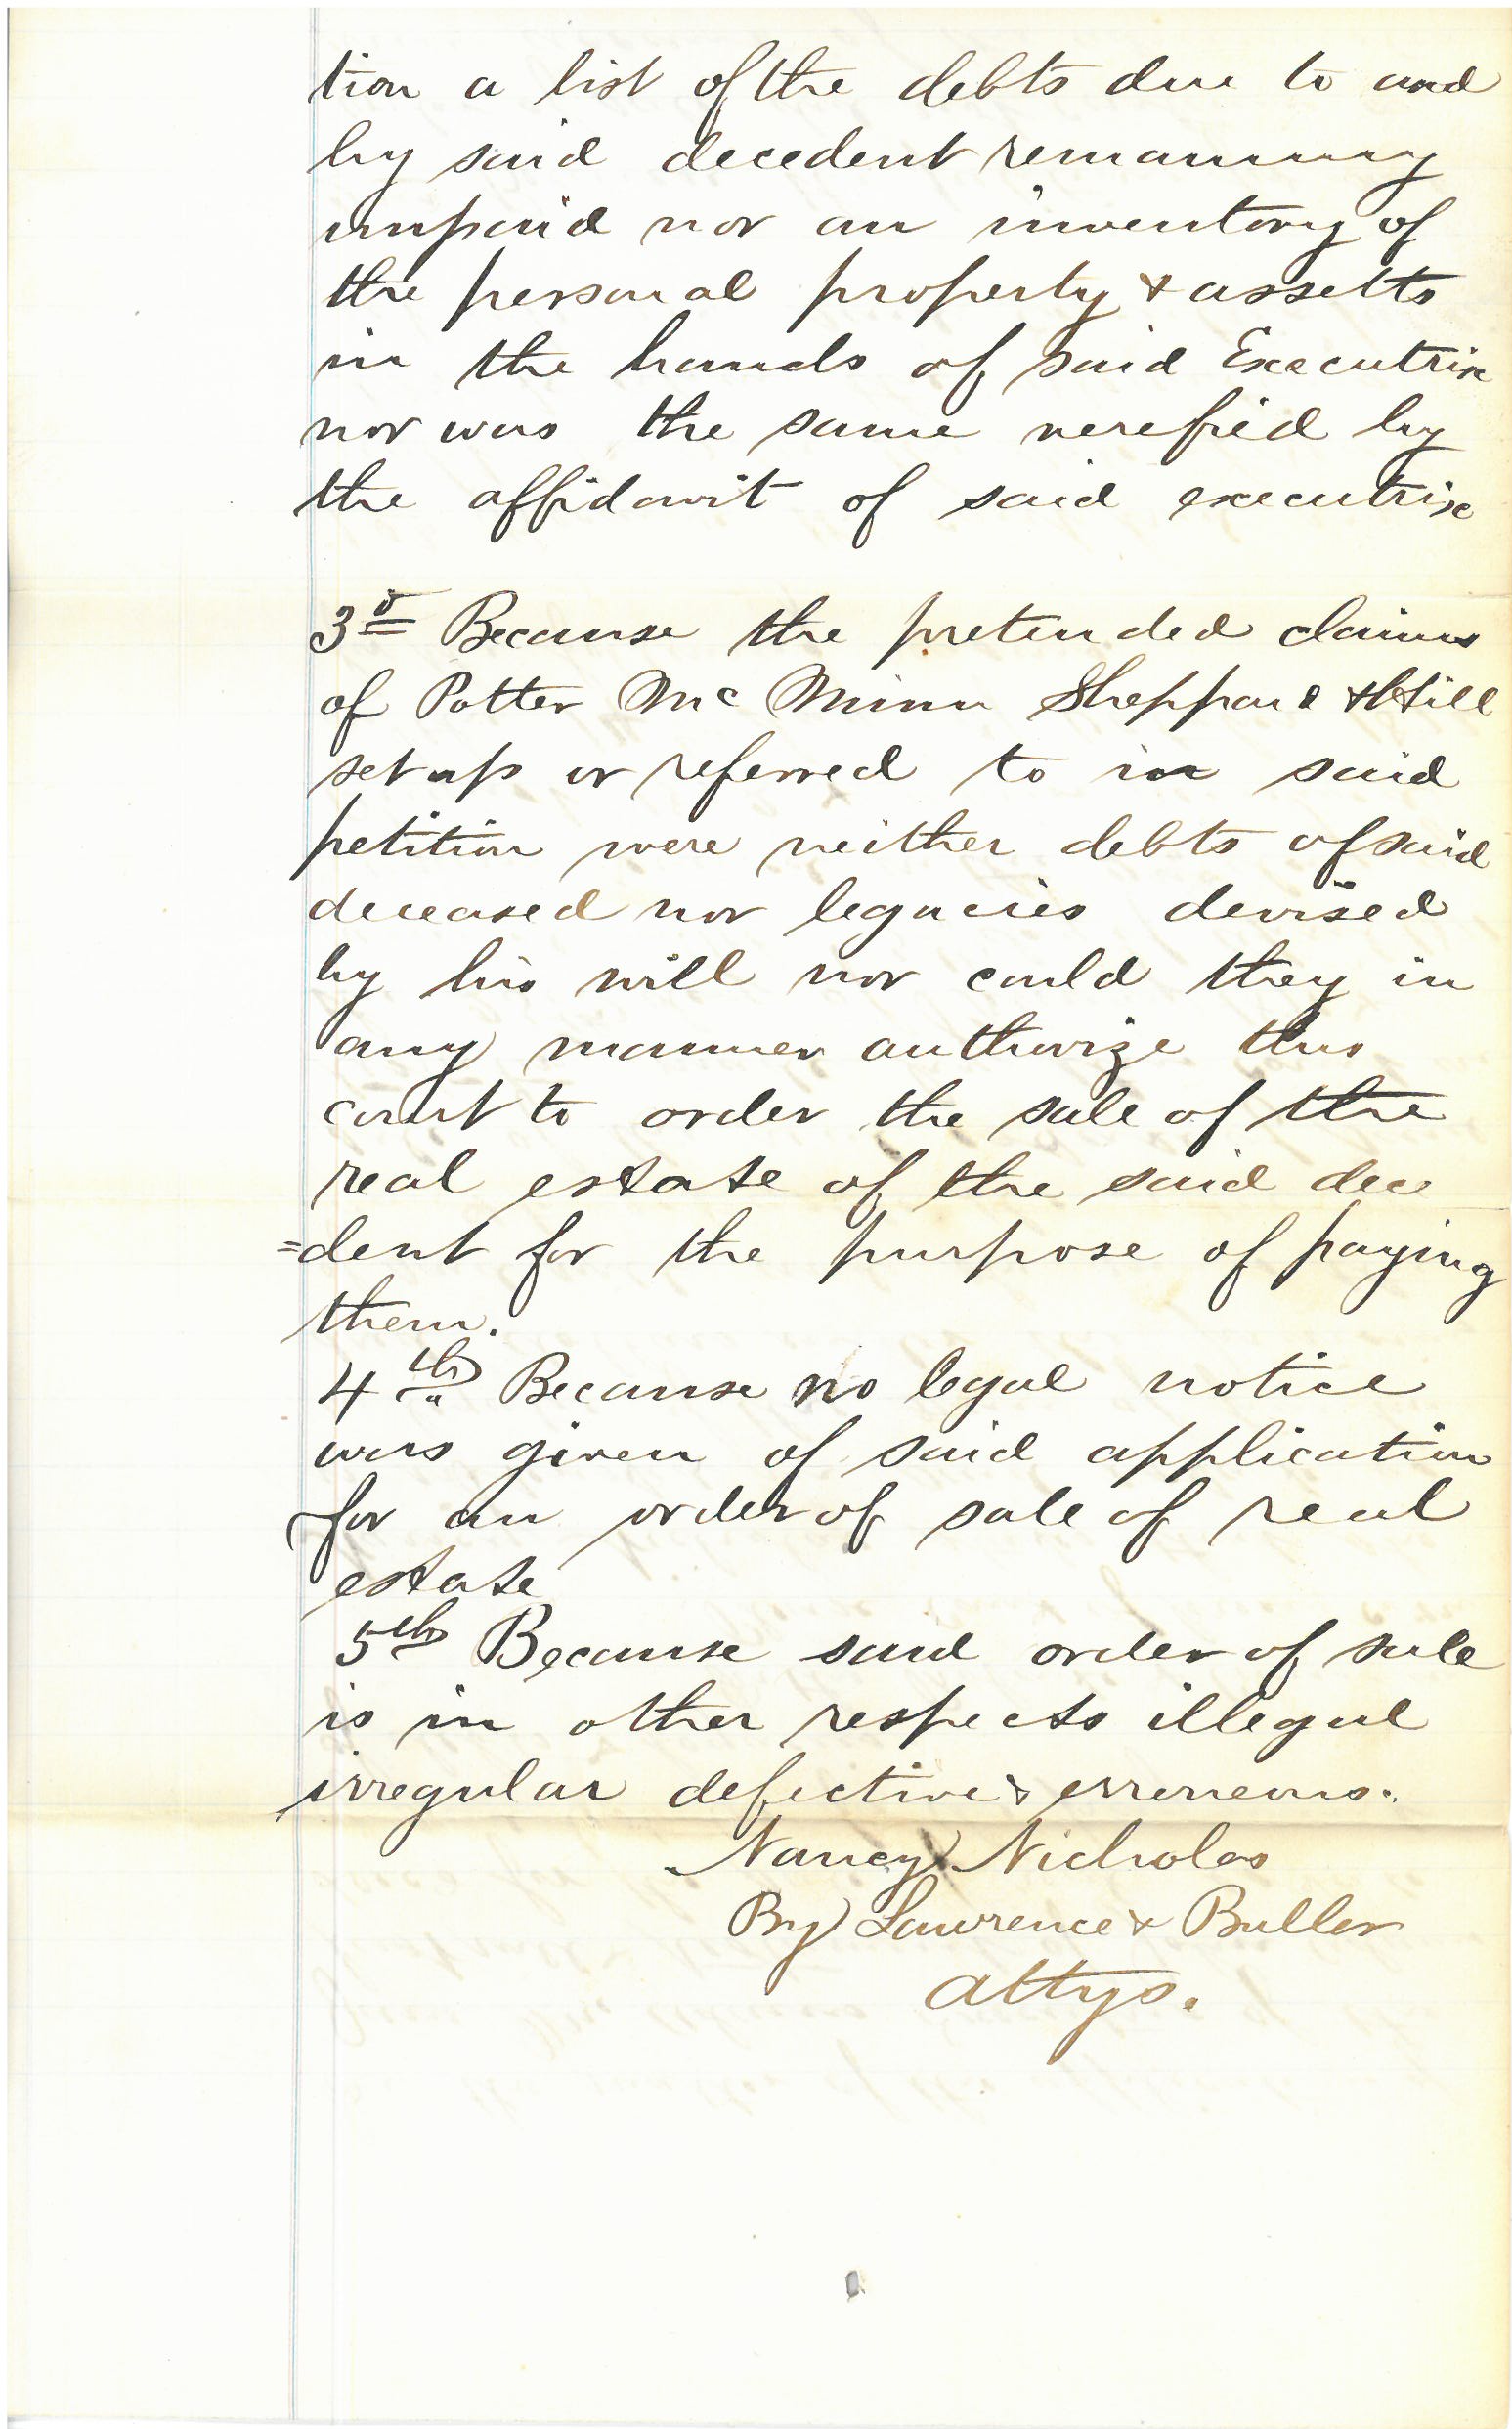 tion a list of the debts due to and
by said decedent remaining
unpaid nor an inventory of
the personal property & assetts
in the hands of said Executrix
nor was the same verefied by
the affidavit of said executrix
3d Because the pretended claims
of Potter McMinn Sheppard & Hill
set up or referred to in said
petition were neither debts of said
deceased nor legacies devised
by his will nor could they in
any manner authorize this
court to order the sale of the
real estate of the said dece
=dent for the purpose of paying
them.
4th Because no legal notice
was given of said application
for an order of sale of real
estate
5th Because said order of sale
is in other respects illegal
irregular defective & erroneous.
Nancy Nicholas
By Lawrence & Buller
attys.